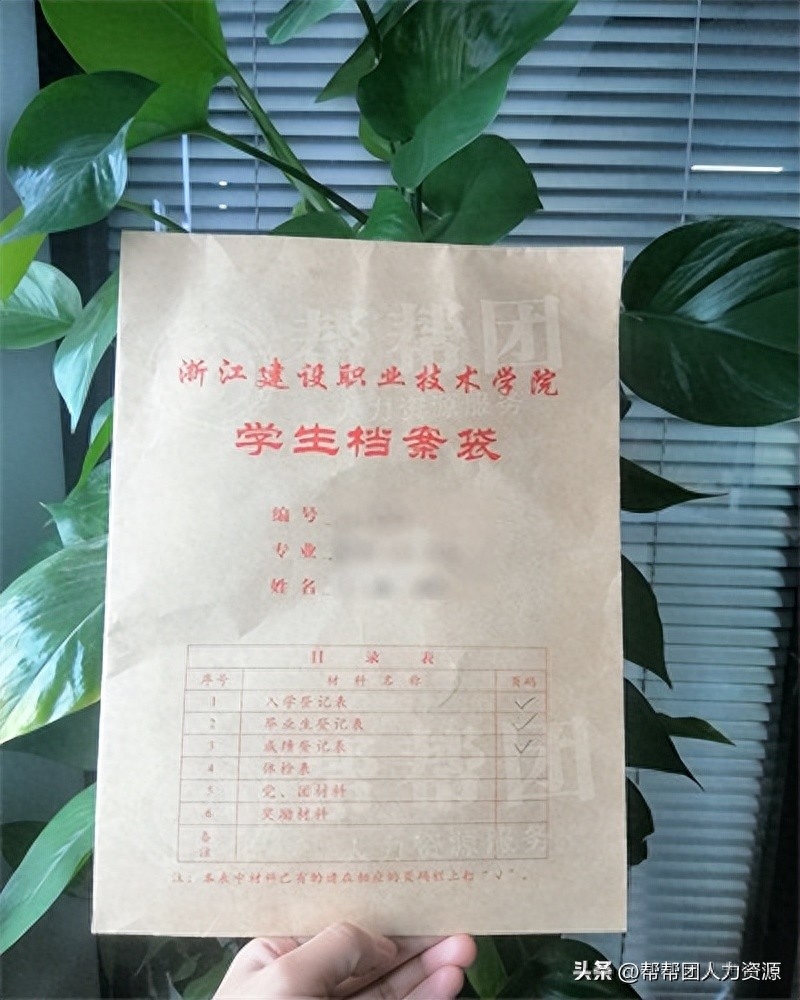 帮帮团
浙江建设职业技术学院
人力资源服务
学生档案袋
编号
专业
姓名
目录表
序号 材料名称 页码
1 入学登记表 ✓
2 毕业生登记表 ✓
3 成绩登记表 ✓
4 体检表
5 党、团材料
6 奖励材料
备注
帮帮团
人力资源服务
注：本表中材料已有的请在相应的页码栏上打“√”。
头条 @帮帮团人力资源